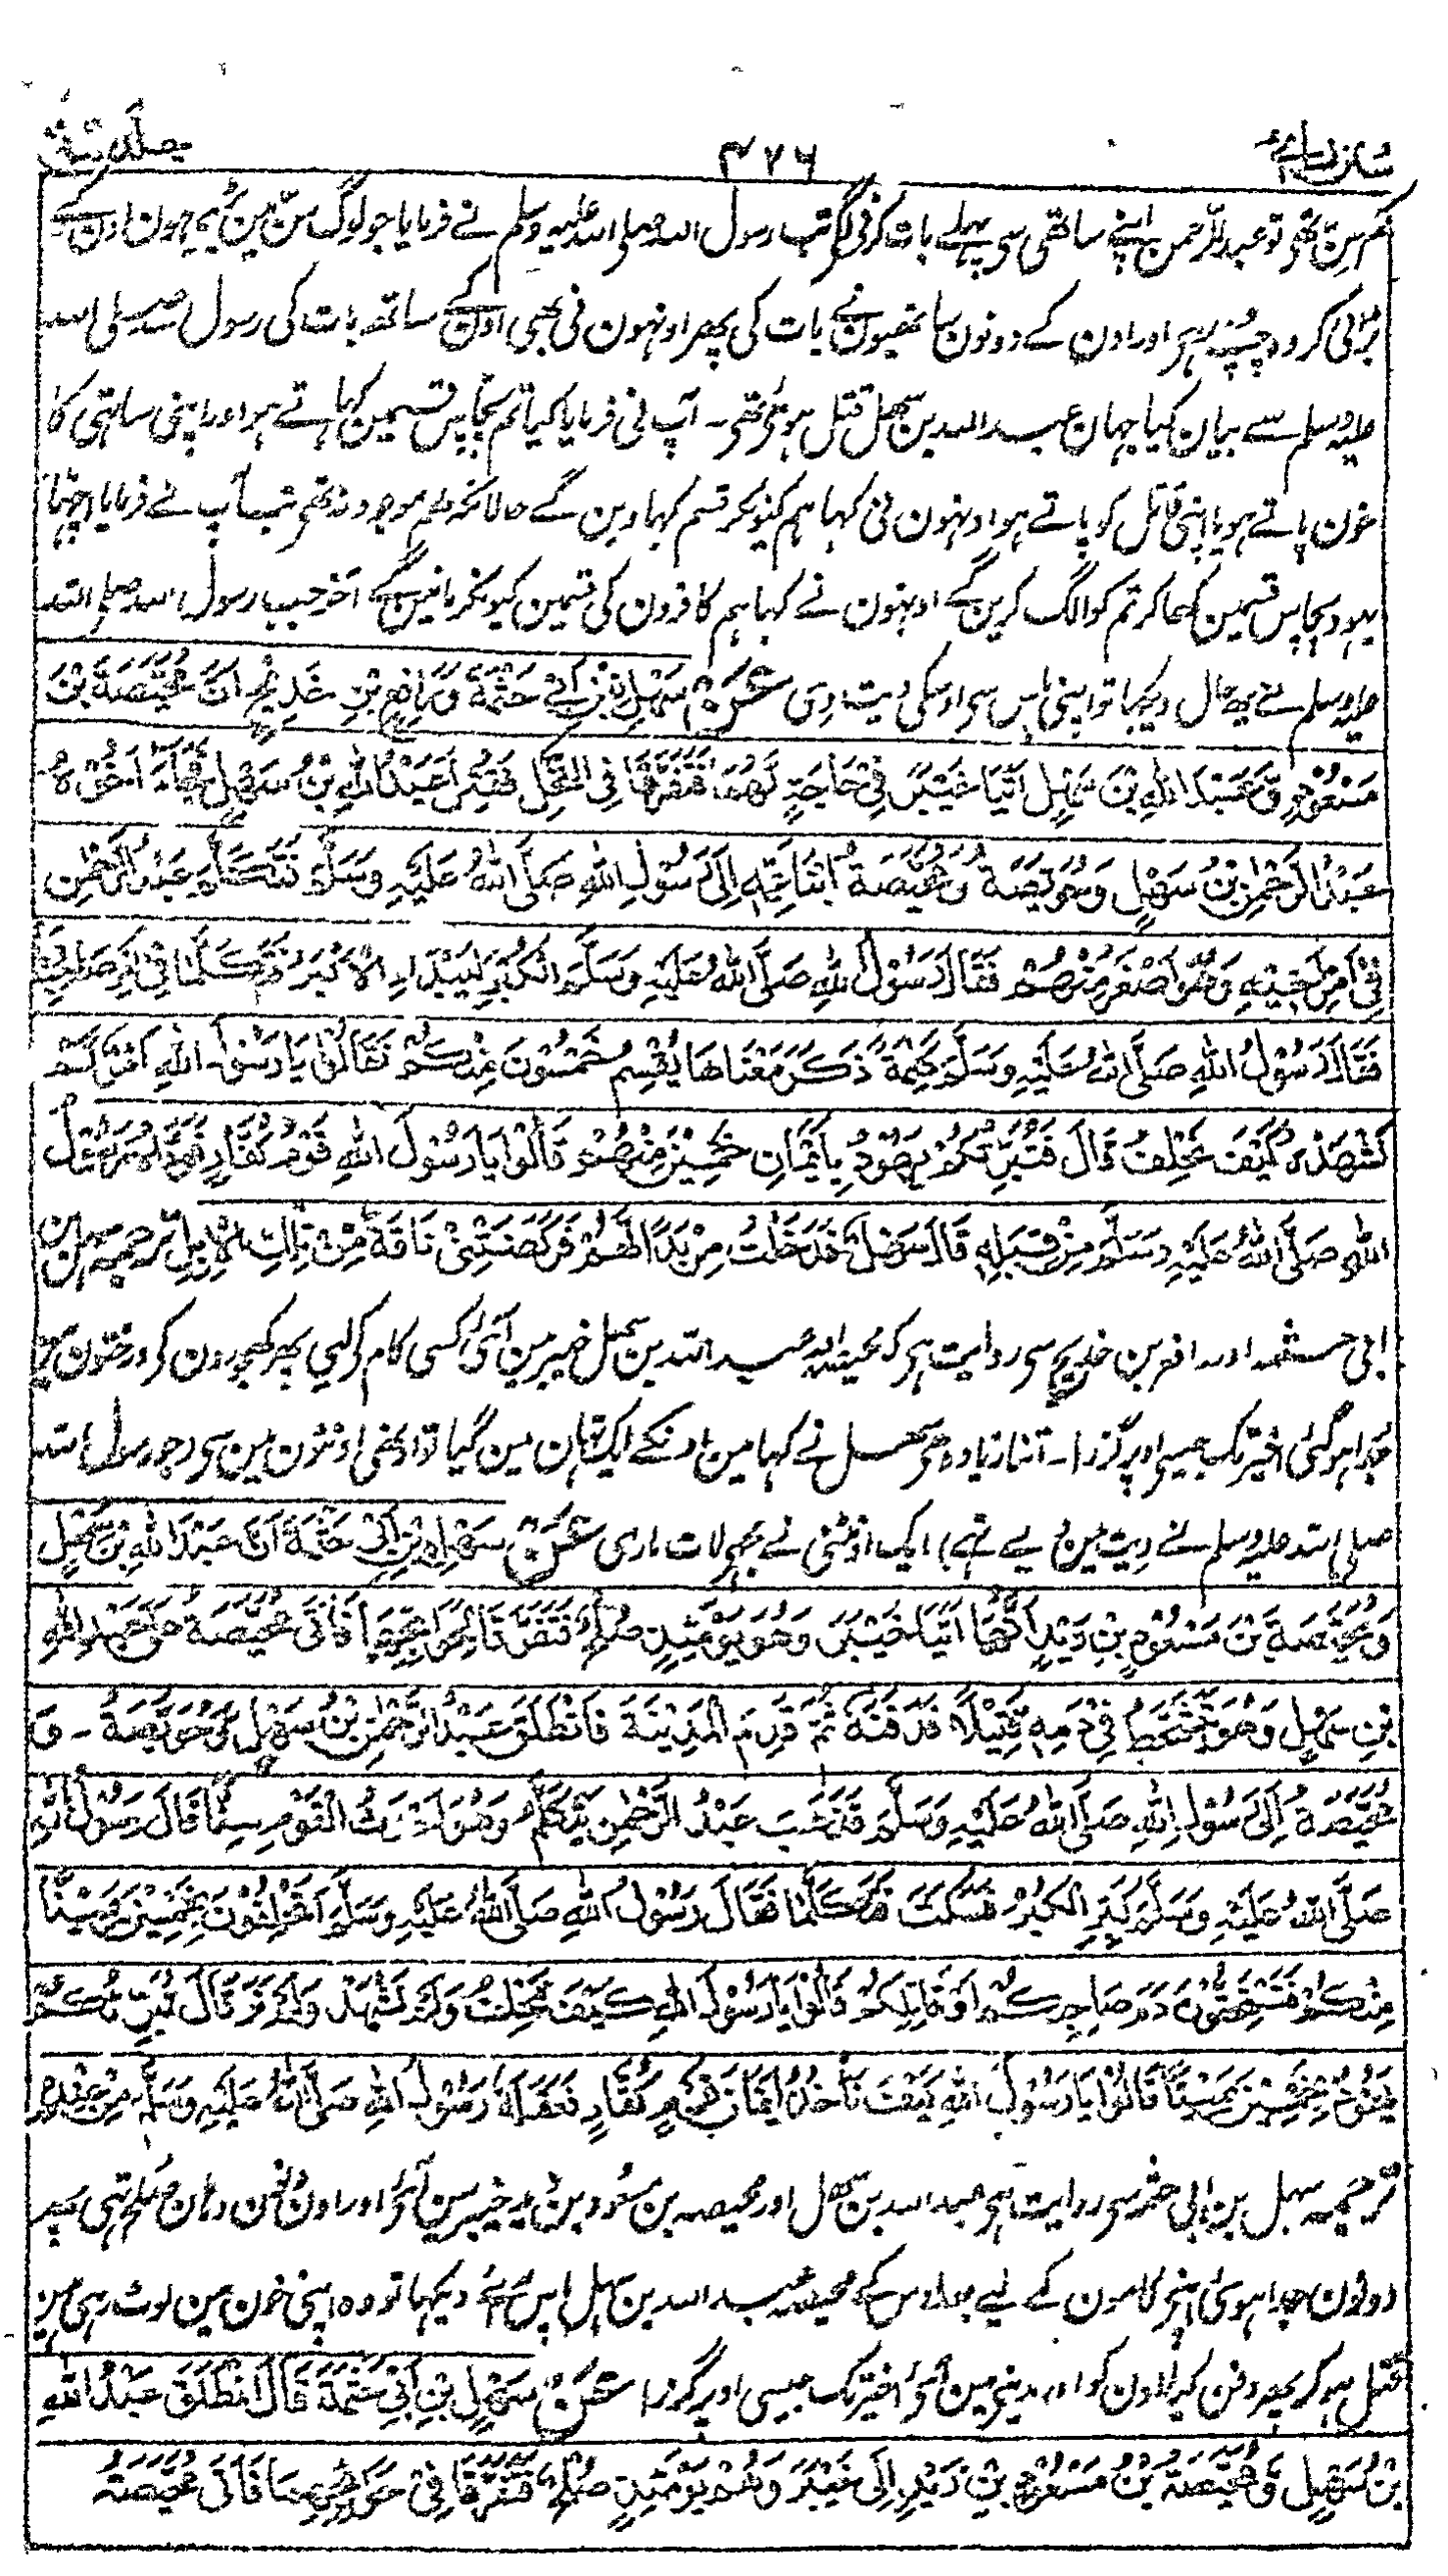 سنن نسائی ۴۲۶ جلد
کم سن تھی تو عبدالرحمن اپنے ساتھی سی پہلے بات کرنی لگی تب رسول اللہ صلی اللہ علیہ وسلم نے فرمایا جو لوگ سن مین بڑے ہون اون کے
بڑائی کر وہ چپ ہو رہی اور اون کے دونون ساتھیون نے بات کی پھر اونہون نی بھی اون کے ساتھ بات کی رسول اللہ صلی اللہ
علیہ وسلم سے بیان کیا جہان عبد اللہ بن سہل قتل ہوئی تھی۔ آپ نی فرمایا کیا تم پچاس قسمین کہاتے ہو اور اپنی ساتھی کا
خون پاتے ہو یا اپنی قاتل کو پاتے ہو اونہون نی کہا ہم کیونکر قسم کہاوین گے حالانکہ ہم موجود نہ تھی تب آپ نے فرمایا اچھا
یہود پچاس قسمین کھا کر تم کو الگ کرین گے اونہون نے کہا ہم کافرون کی قسمین کیونکر مانین گے آخر جب رسول اللہ صلی اللہ
علیہ وسلم نے یہ حال دیکہا تو اپنی پاس سی اوسکی دیت دی عَنْ سَهْلِ بْنِ أَبِي حَثْمَةَ وَرَافِعِ بْنِ خَدِيجٍ أَنَّ مُحَيِّصَةَ بْنَ
مَسْعُوْدٍ وَّعَبْدَ اللهِ بْنَ سَهْلٍ أَتَيَا خَيْبَرَ فِيْ حَاجَةٍ لَهُمَا فَتَفَرَّقَا فِي النَّخْلِ فَقُتِلَ عَبْدُ اللهِ بْنُ سَهْلٍ فَجَاءَ أَخُوْهُ
عَبْدُ الرَّحْمٰنِ بْنُ سَهْلٍ وَحُوَيِّصَةُ وَمُحَيِّصَةُ ابْنَا عَمِّهِ إِلٰى رَسُوْلِ اللهِ صَلَّى اللهُ عَلَيْهِ وَسَلَّمَ فَتَكَلَّمَ عَبْدُ الرَّحْمٰنِ
فِيْ أَمْرِ أَخِيْهِ وَهُوَ أَصْغَرُ مِنْهُمْ فَقَالَ رَسُوْلُ اللهِ صَلَّى اللهُ عَلَيْهِ وَسَلَّمَ الْكُبْرَ لِيَبْدَإِ الْأَكْبَرُ فَتَكَلَّمَا فِيْ أَمْرِ صَاحِبِهِمَا
فَقَالَ رَسُوْلُ اللهِ صَلَّى اللهُ عَلَيْهِ وَسَلَّمَ كَلِمَةً ذَكَرَ مَعْنَاهَا يُقْسِمُ خَمْسُوْنَ مِنْكُمْ فَقَالُوْا يَا رَسُوْلَ اللهِ أَمْرٌ لَمْ
نَشْهَدْهُ كَيْفَ نَحْلِفُ قَالَ فَتُبَرِّئُكُمْ يَهُوْدُ بِأَيْمَانِ خَمْسِيْنَ مِنْهُمْ قَالُوْا يَا رَسُوْلَ اللهِ قَوْمٌ كُفَّارٌ فَوَدَاهُ رَسُوْلُ
اللهِ صَلَّى اللهُ عَلَيْهِ وَسَلَّمَ مِنْ قِبَلِهِ قَالَ سَهْلٌ فَدَخَلْتُ مِرْبَدًا لَهُمْ فَرَكَضَتْنِيْ نَاقَةٌ مِنْ تِلْكَ الْإِبِلِ ترجمہ سہل بن
ابی حثمہ اور رافع بن خدیج سی روایت ہی کہ محیصہ اور عبد اللہ بن سہل خیبر مین آئی کسی کام کی لیی پھر کھجورون کی درختون مین
جدا ہو گئی اخیر تک جیسی اوپر گزرا۔ اتنا زیادہ ہی سہل نے کہا مین اونکے ایک تھان مین گیا تو اونھی اونٹون مین سی (جو رسول اللہ
صلی اللہ علیہ وسلم نے دیت مین دیے تہے) ایک اونٹنی نے مجہی لات ماری عَنْ سَهْلِ بْنِ أَبِي حَثْمَةَ أَنَّ عَبْدَ اللهِ بْنَ سَهْلٍ
وَمُحَيِّصَةَ بْنَ مَسْعُوْدِ بْنِ زَيْدٍ أَنَّهُمَا أَتَيَا خَيْبَرَ وَهُوَ يَوْمَئِذٍ صُلْحٌ فَتَفَرَّقَا لِحَوَائِجِهِمَا فَأَتٰى مُحَيِّصَةُ عَلٰى عَبْدِ اللهِ
بْنِ سَهْلٍ وَهُوَ يَتَشَحَّطُ فِيْ دَمِهِ قَتِيْلًا فَدَفَنَهُ ثُمَّ قَدِمَ الْمَدِيْنَةَ فَانْطَلَقَ عَبْدُ الرَّحْمٰنِ بْنُ سَهْلٍ وَحُوَيِّصَةُ ۔ وَ
مُحَيِّصَةُ إِلٰى رَسُوْلِ اللهِ صَلَّى اللهُ عَلَيْهِ وَسَلَّمَ فَذَهَبَ عَبْدُ الرَّحْمٰنِ يَتَكَلَّمُ وَهُوَ أَحْدَثُ الْقَوْمِ سِنًّا فَقَالَ رَسُوْلُ اللهِ
صَلَّى اللهُ عَلَيْهِ وَسَلَّمَ كَبِّرِ الْكُبْرَ فَسَكَتَ فَتَكَلَّمَا فَقَالَ رَسُوْلُ اللهِ صَلَّى اللهُ عَلَيْهِ وَسَلَّمَ أَتَحْلِفُوْنَ بِخَمْسِيْنَ يَمِيْنًا
مِنْكُمْ فَتَسْتَحِقُّوْنَ دَمَ صَاحِبِكُمْ أَوْ قَاتِلِكُمْ قَالُوْا يَا رَسُوْلَ اللهِ كَيْفَ نَحْلِفُ وَلَمْ نَشْهَدْ وَلَمْ نَرَ قَالَ تُبَرِّئُكُمْ
يَهُوْدُ بِخَمْسِيْنَ يَمِيْنًا قَالُوْا يَا رَسُوْلَ اللهِ كَيْفَ نَأْخُذُ أَيْمَانَ قَوْمٍ كُفَّارٍ فَعَقَلَهُ رَسُوْلُ اللهِ صَلَّى اللهُ عَلَيْهِ وَسَلَّمَ مِنْ عِنْدِهِ
ترجمہ سہل بن ابی حثمہ سی روایت ہی عبد اللہ بن سہل اور محیصہ بن مسعود بن زید خیبر مین آئی اور اون دنون وہان صلح تہی پہر
دونون جدا ہوئی اپنی کامون کے لیے بعد اوس کے محیصہ عبد اللہ بن سہل پاس آئے دیکہا تو وہ اپنی خون مین لوٹ رہی ہین
قتل ہو کر پھر دفن کیا اون کو اور مدینے مین آئی اخیر تک جیسی اوپر گزرا عَنْ سَهْلِ بْنِ أَبِي حَثْمَةَ قَالَ انْطَلَقَ عَبْدُ اللهِ
بْنُ سَهْلٍ وَمُحَيِّصَةُ بْنُ مَسْعُوْدِ بْنِ زَيْدٍ إِلٰى خَيْبَرَ وَهِيَ يَوْمَئِذٍ صُلْحٌ فَتَفَرَّقَا فِيْ حَوَائِجِهِمَا فَأَتٰى مُحَيِّصَةُ